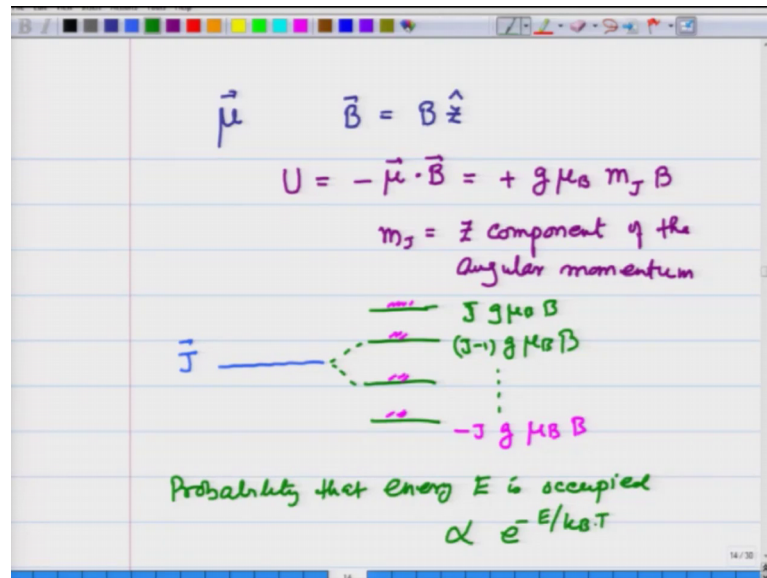 μ⃗ B⃗ = B ẑ
U = − μ⃗ · B⃗ = + g μB mJ B
mJ = Z component of the
angular momentum
J g μB B
(J-1) g μB B
J⃗
-J g μB B
Probability that energy E is occupied
∝ e^-E/kB.T
14/30
14